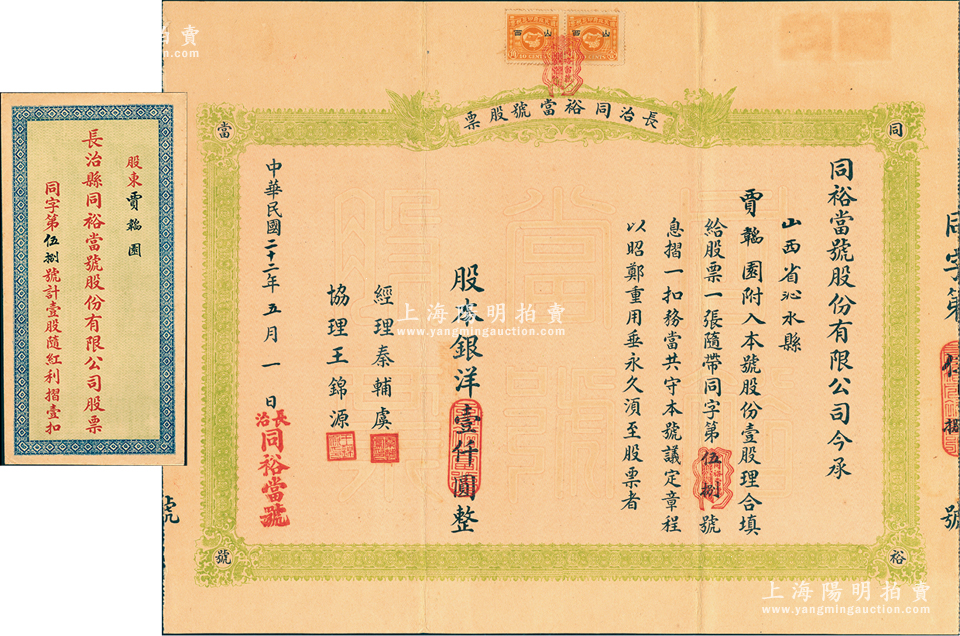 長治同裕當號股票
同
裕
當
號
同裕當號股份有限公司今承
山西省沁水縣
賈韜園附入本號股份壹股理合填
給股票一張隨帶同字第伍捌號
息摺一扣務當共守本號議定章程
以昭鄭重用垂永久須至股票者
股本銀洋壹仟圓整
經理秦輔虞
協理王錦源
中華民國二十二年五月一日
長治
同裕當號
山西
山西
同字第
伍捌
號
號
股東賈韜園
長治縣同裕當號股份有限公司股票
同字第伍捌號計壹股隨紅利摺壹扣
上海陽明拍賣
www.yangmingauction.com
上海陽明拍賣
www.yangmingauction.com